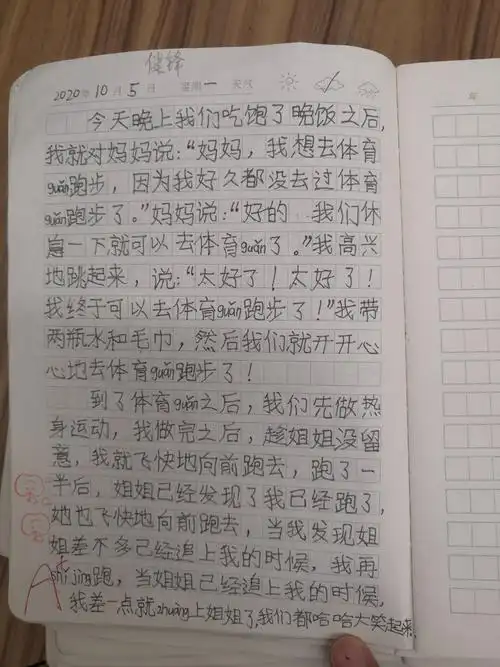 健锋
2020年 10月 5日 星期一 天气
今天晚上我们吃饱了晚饭之后,
我就对妈妈说:“妈妈,我想去体育
guǎn跑步,因为我好久都没去过体育
guǎn跑步了。”妈妈说:“好的 我们休
息一下就可以去体育guǎn了。”我高兴
地跳起来,说:“太好了!太好了!
我终于可以去体育guǎn跑步了!”我带
两瓶水和毛巾,然后我们就开开心
心地去体育guǎn跑步了!
到了体育guǎn之后,我们先做热
身运动,我做完之后,趁姐姐没留
意,我就飞快地向前跑去,跑了一
半后,姐姐已经发现了我已经跑了,
她也飞快地向前跑去,当我发现姐
姐差不多已经追上我的时候,我再
shǐ jìng跑,当姐姐已经追上我的时候,
我差一点就zhuàng上姐姐了,我们都哈哈大笑起来.
A+